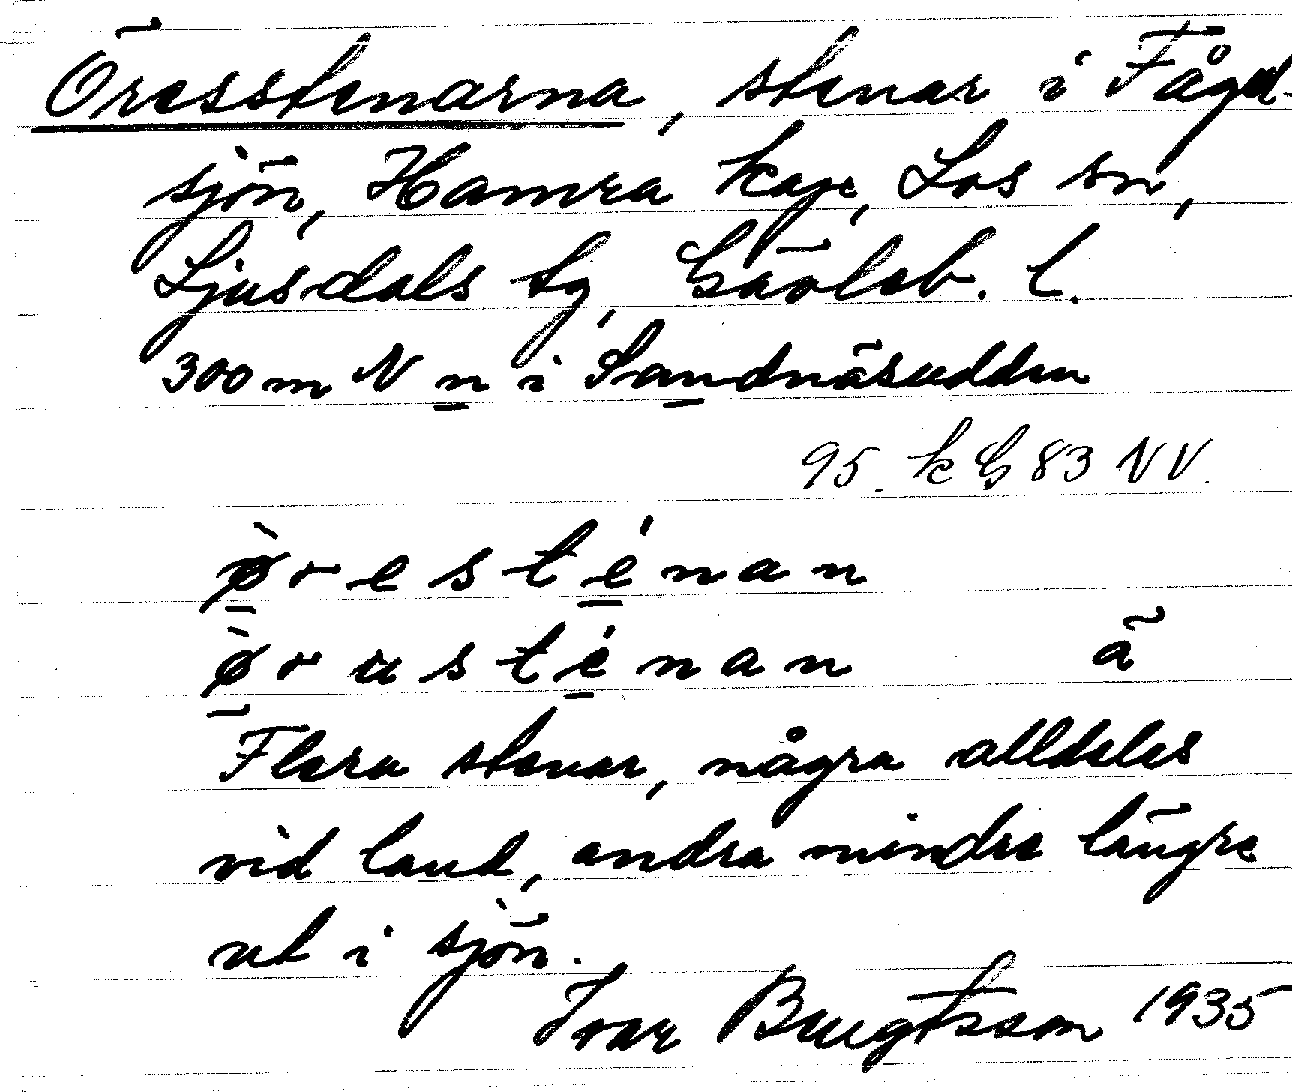 Öresstenarna, stenar i Tågel-
sjön, Hamra kape, Los sn,
Ljusdals tg, Gävleb. l.
300 m N n i Sandnäsudden
95. k G 83 NV.
ø̀resténan
ø̀rusténan ä
Flera stenar, några alldeles
vid land, andra mindre längre
ut i sjön.
Ivar Bengtsson 1935